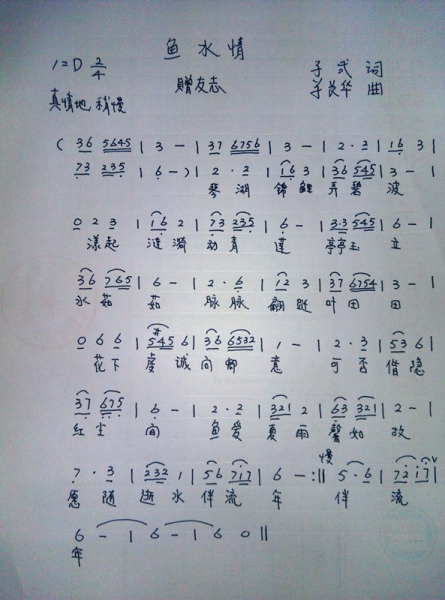 鱼水情
1=D 2/4
子弌 词
赠友志
曲
真情地 稍慢
( 36 5645 | 3 - | 37 6756 | 3 - | 2·2 | 16 3 |
73 235 | 6 - ) | 2·2 | 16 3 | 36 545 | 3 - |
琴湖锦鲤弄碧波
0 2 3 | 16 2 | 73 235 | 6 - | 3·3 545 | 6 - |
漾起涟漪动青莲亭亭玉立
36 765 | 6 - | 2·6 | 12 3 | 37 6754 | 3 - |
水茹茹脉脉翩跹叶田田
0 6 6 | #545 6 | 36 6532 | 1 - | 2·3 | 53 6 |
花下虔诚向卿意可否偕隐
37 675 | 6 - | 2·2 | 321 2 | 63 321 | 2 - |
红尘间鱼爱夏雨馨如故
慢
7·3 | 232 1 | 56 717 | 6 - :|| 5·6 | 72 17 |
愿随逝水伴流年伴流
6 - | 6 - | 6 0 ||
年